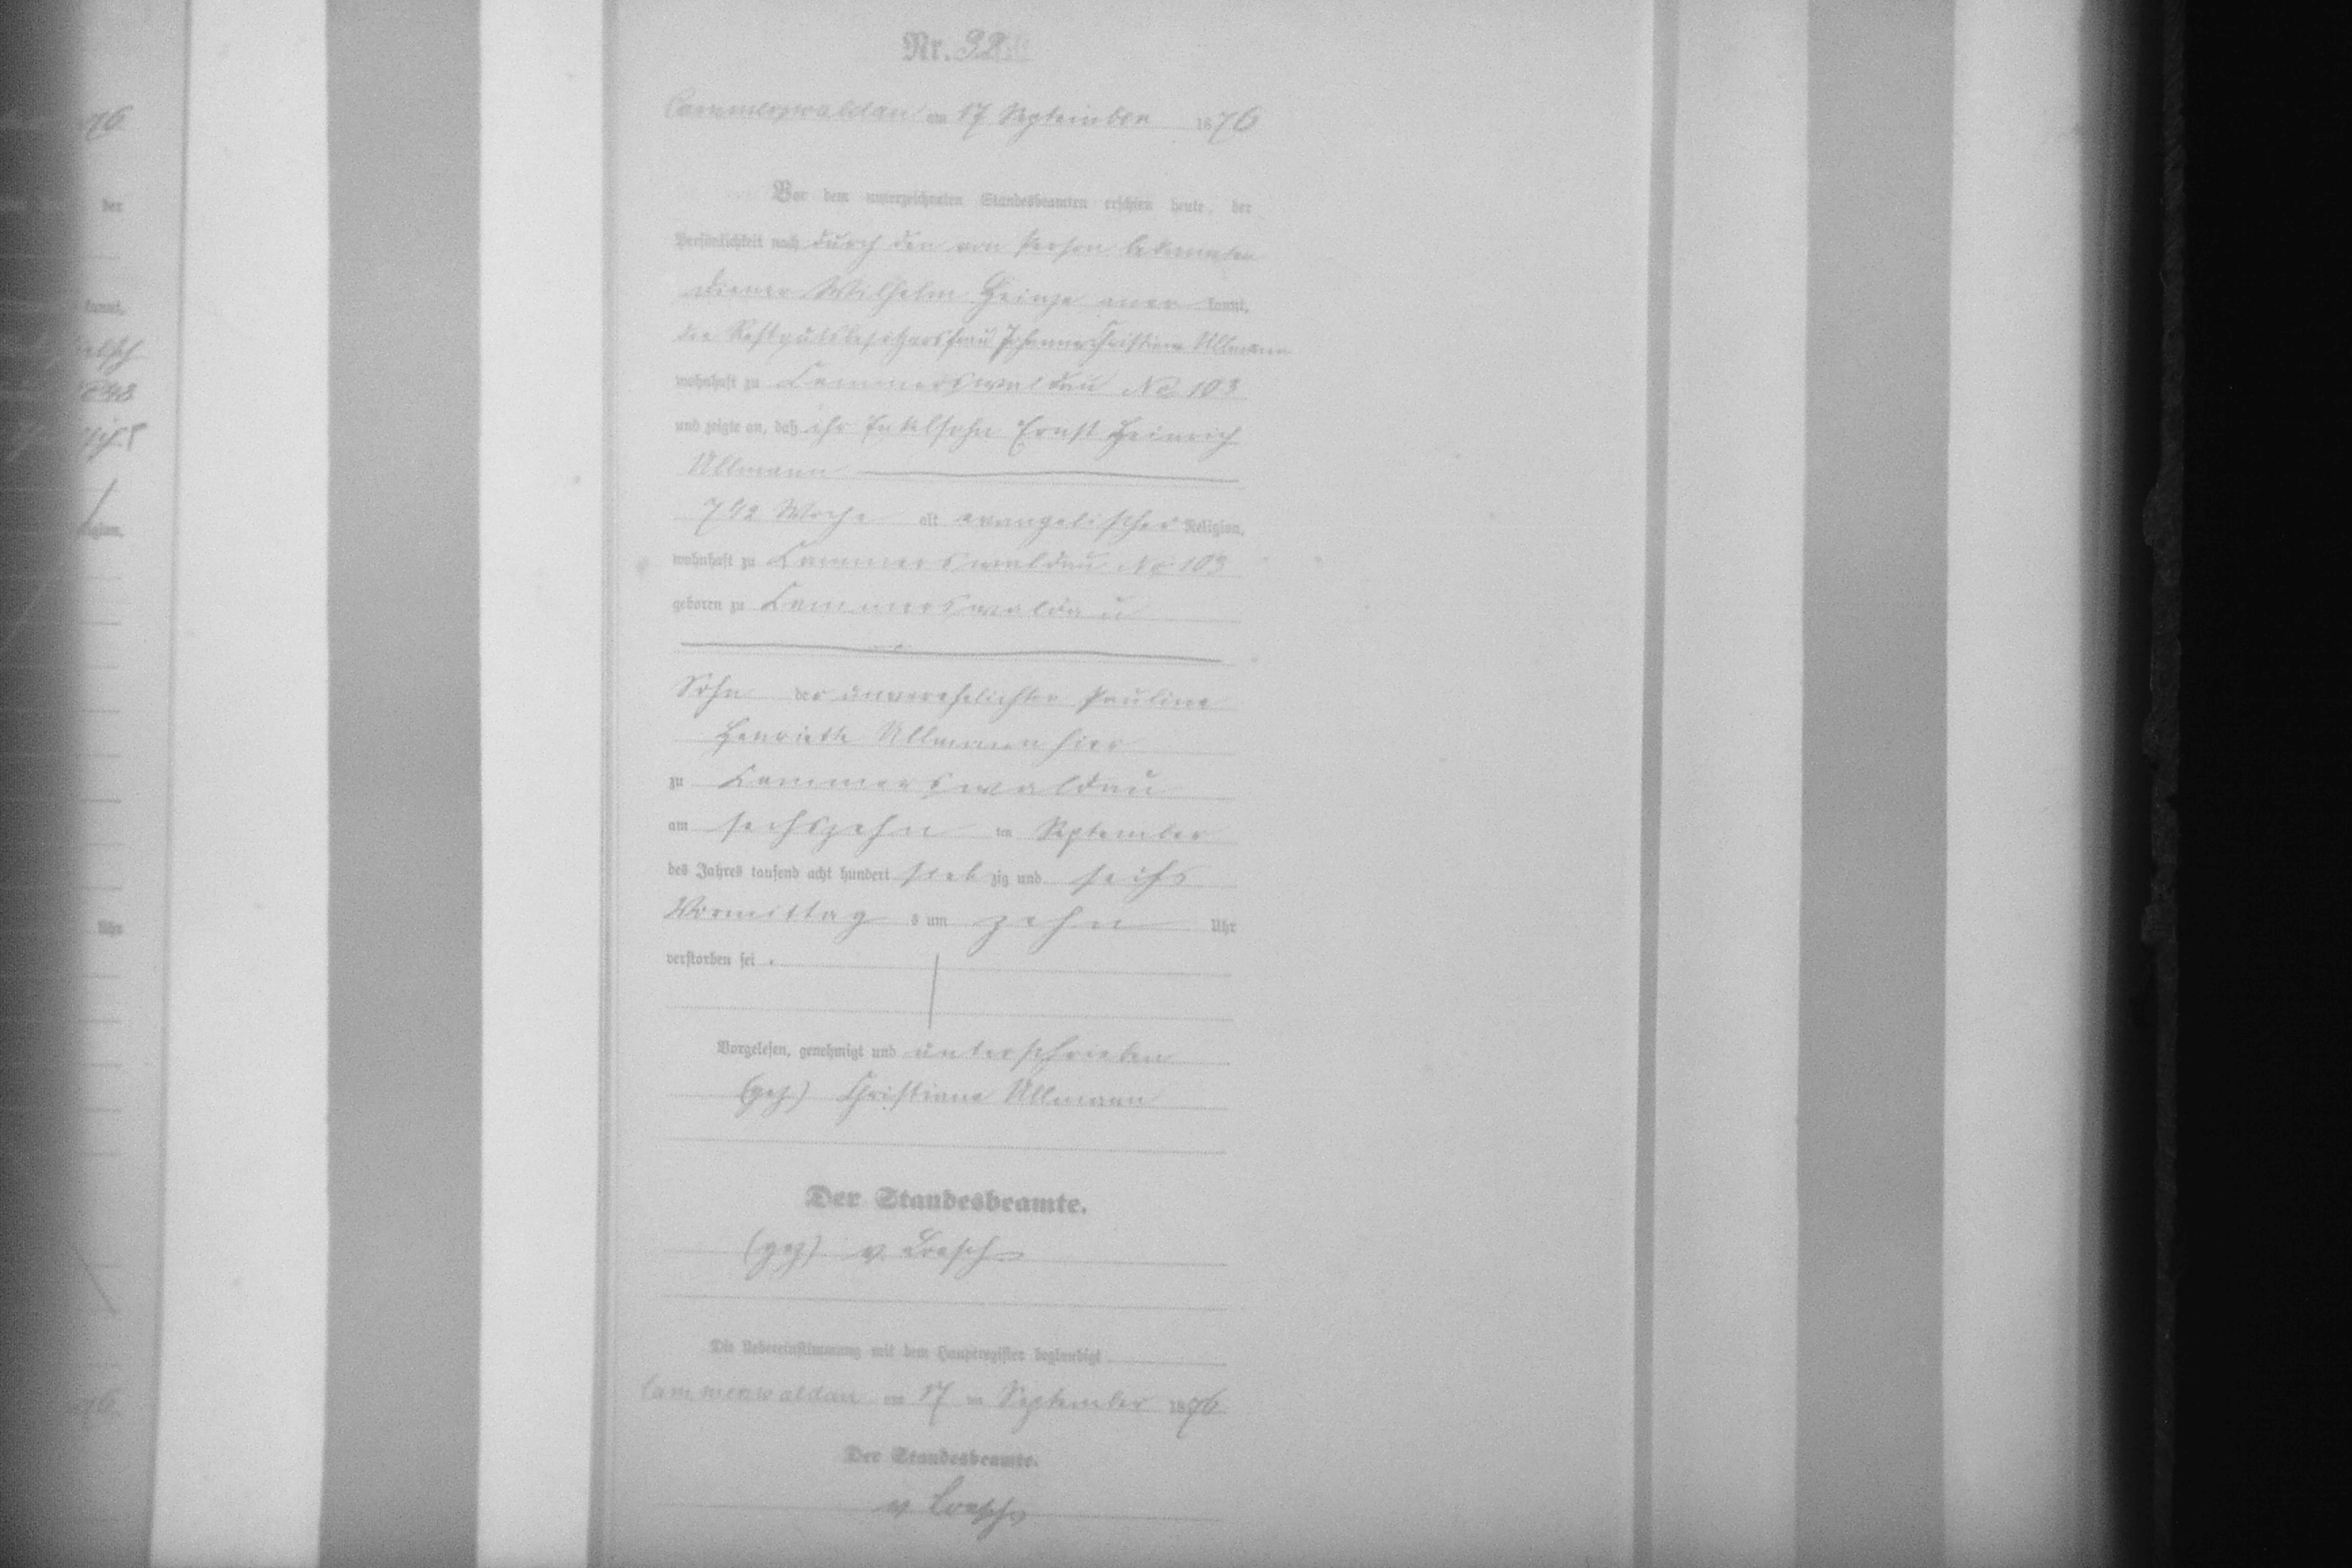 Nr. 32
Cammerswaldau am 17 September 1876
Vor dem unterzeichneten Standesbeamten erschien heute, der
Persönlichkeit nach durch den von Person bekannten
Diener Wilhelm Heinze aner kannt,
die Restgutsbesitzersfrau Johanne Christiane Ullmann
wohnhaft zu Cammerswaldau No 103
und zeigte an, daß ihr Enkelsohn Ernst Heinrich
Ullmann
Woche alt evangelischer Religion,
wohnhaft zu Cammerswaldau No 103
geboren zu Cammerswaldau
Sohn der unverehelichten Pauline
Henriette Ullmann hier
zu Cammerswaldau
am sechszehn ten September
des Jahres tausend acht hundert sieb zig und sechs
Vormittag s um zehn Uhr
verstorben sei.
Vorgelesen, genehmigt und unterschrieben
(gez) Christiane Ullmann
Der Standesbeamte.
(gez) v. Loesch
Die Uebereinstimmung mit dem Hauptregister beglaubigt
Cammerswaldau am 17 ten September 1876
Der Standesbeamte.
v Loesch